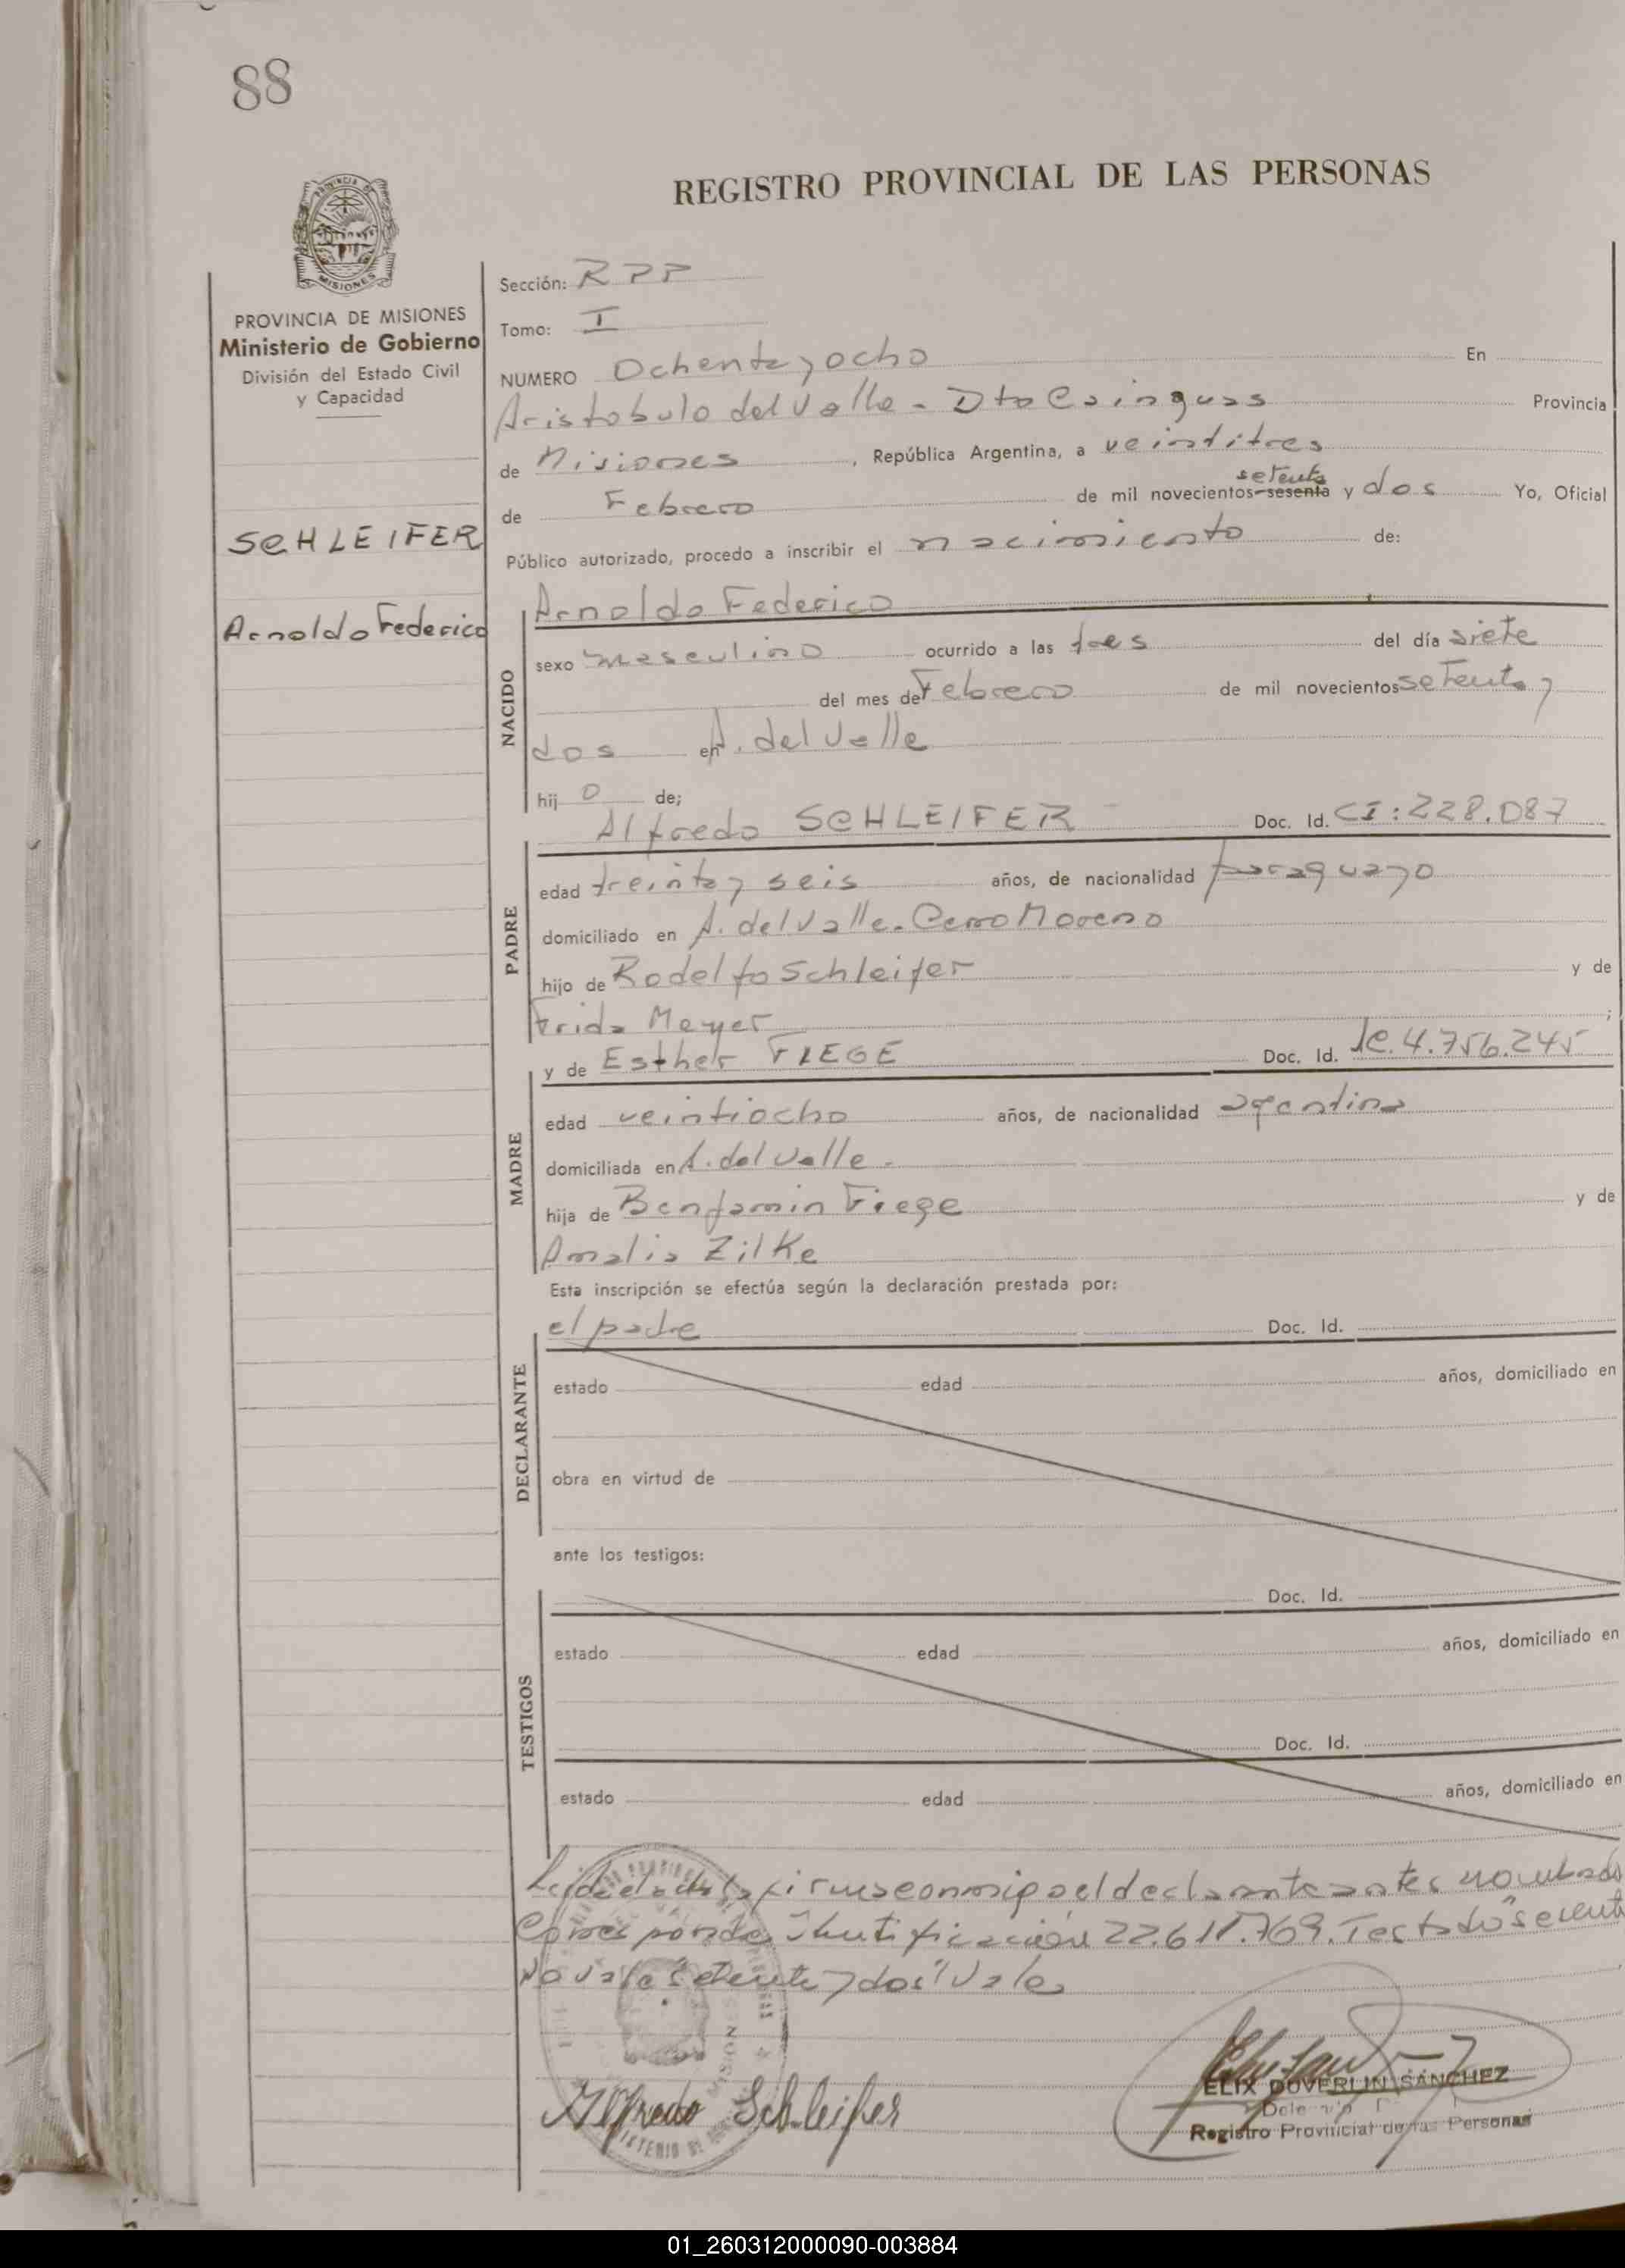 88
REGISTRO PROVINCIAL DE LAS PERSONAS
PROVINCIA DE MISIONES
Ministerio de Gobierno
División del Estado Civil
y Capacidad
SCHLEIFER
Arnoldo Federico
Sección: RPP
Tomo: I
NUMERO Ochenta y ocho En
Aristobulo del Valle - Dto Cainguas Provincia
de Misiones, República Argentina, a veintitres
setenta
de Febrero de mil novecientos sesenta y dos Yo, Oficial
Público autorizado, procedo a inscribir el nacimiento de:
NACIDO
Arnoldo Federico
sexo masculino ocurrido a las tres del día siete
del mes de Febrero de mil novecientos setenta y
dos en A. del Valle
hij o de;
PADRE
Alfredo SCHLEIFER Doc. Id. CI: 228.087
edad treinta y seis años, de nacionalidad paraguayo
domiciliado en A. del Valle. Cerro Moreno
hijo de Rodolfo Schleifer y de
Frida Meyer ;
MADRE
y de Esther FIEGE Doc. Id. lc. 4.756.245
edad veintiocho años, de nacionalidad agentina
domiciliada en A. del Valle.
hija de Benjamin Fiege y de
Amalia Zilke
Esta inscripción se efectúa según la declaración prestada por:
DECLARANTE
el padre Doc. Id.
estado edad años, domiciliado en
obra en virtud de
ante los testigos:
TESTIGOS
Doc. Id.
estado edad años, domiciliado en
Doc. Id.
estado edad años, domiciliado en
Leida el acta la firma conmigo el declarante antes nombrado
Corresponde Identificación 22.611.769. Testado "sesenta
No vale "setenta y dos" Vale
Alfredo Schleifer
ELIX DUVERLIN SANCHEZ
Registro Provincial de las Personas
01_260312000090-003884